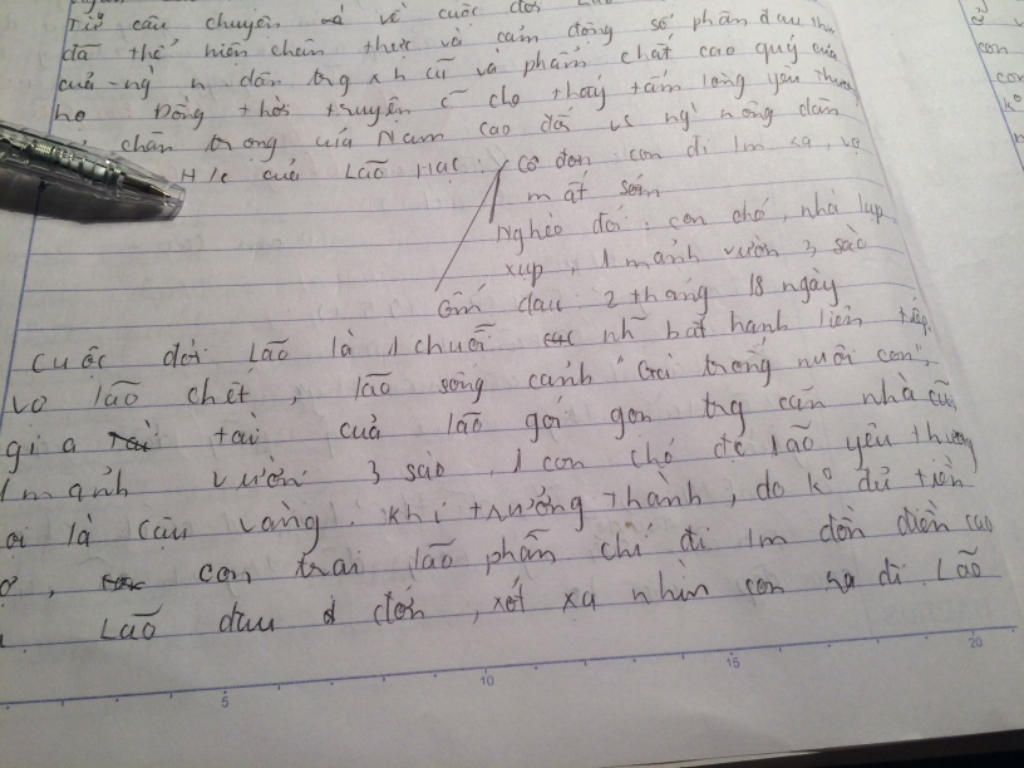 Từ câu chuyện về cuộc đời Lão
đã thể hiện chân thực và cảm động số phận đau thg
của ng n dân trg xh cũ và phẩm chất cao quý của
họ Đồng thời truyện cho thấy tấm lòng yêu thương
chân trọng của Nam Cao đối vs ng nông dân
H/c của Lão Hạc: Cô đơn: con đi lm xa, vợ
mất sớm
Nghèo đói: con chó, nhà lụp
xụp, 1 mảnh vườn 3 sào
Ốm đau 2 tháng 18 ngày
Cuộc đời Lão là 1 chuỗi nh bất hạnh liên tiếp.
vợ lão chết, lão sống cảnh "Gà trống nuôi con",
gia tài của lão gói gọn trg căn nhà cũ,
1 mảnh vườn 3 sào, 1 con chó đc lão yêu thương
là cậu vàng. Khi trưởng thành, do k° đủ tiền
con trai lão phẫn chí đi lm đồn điền cao
Lão đau đớn, xót xa nhìn con ra đi. Lão
5 10 15 20
con
k°